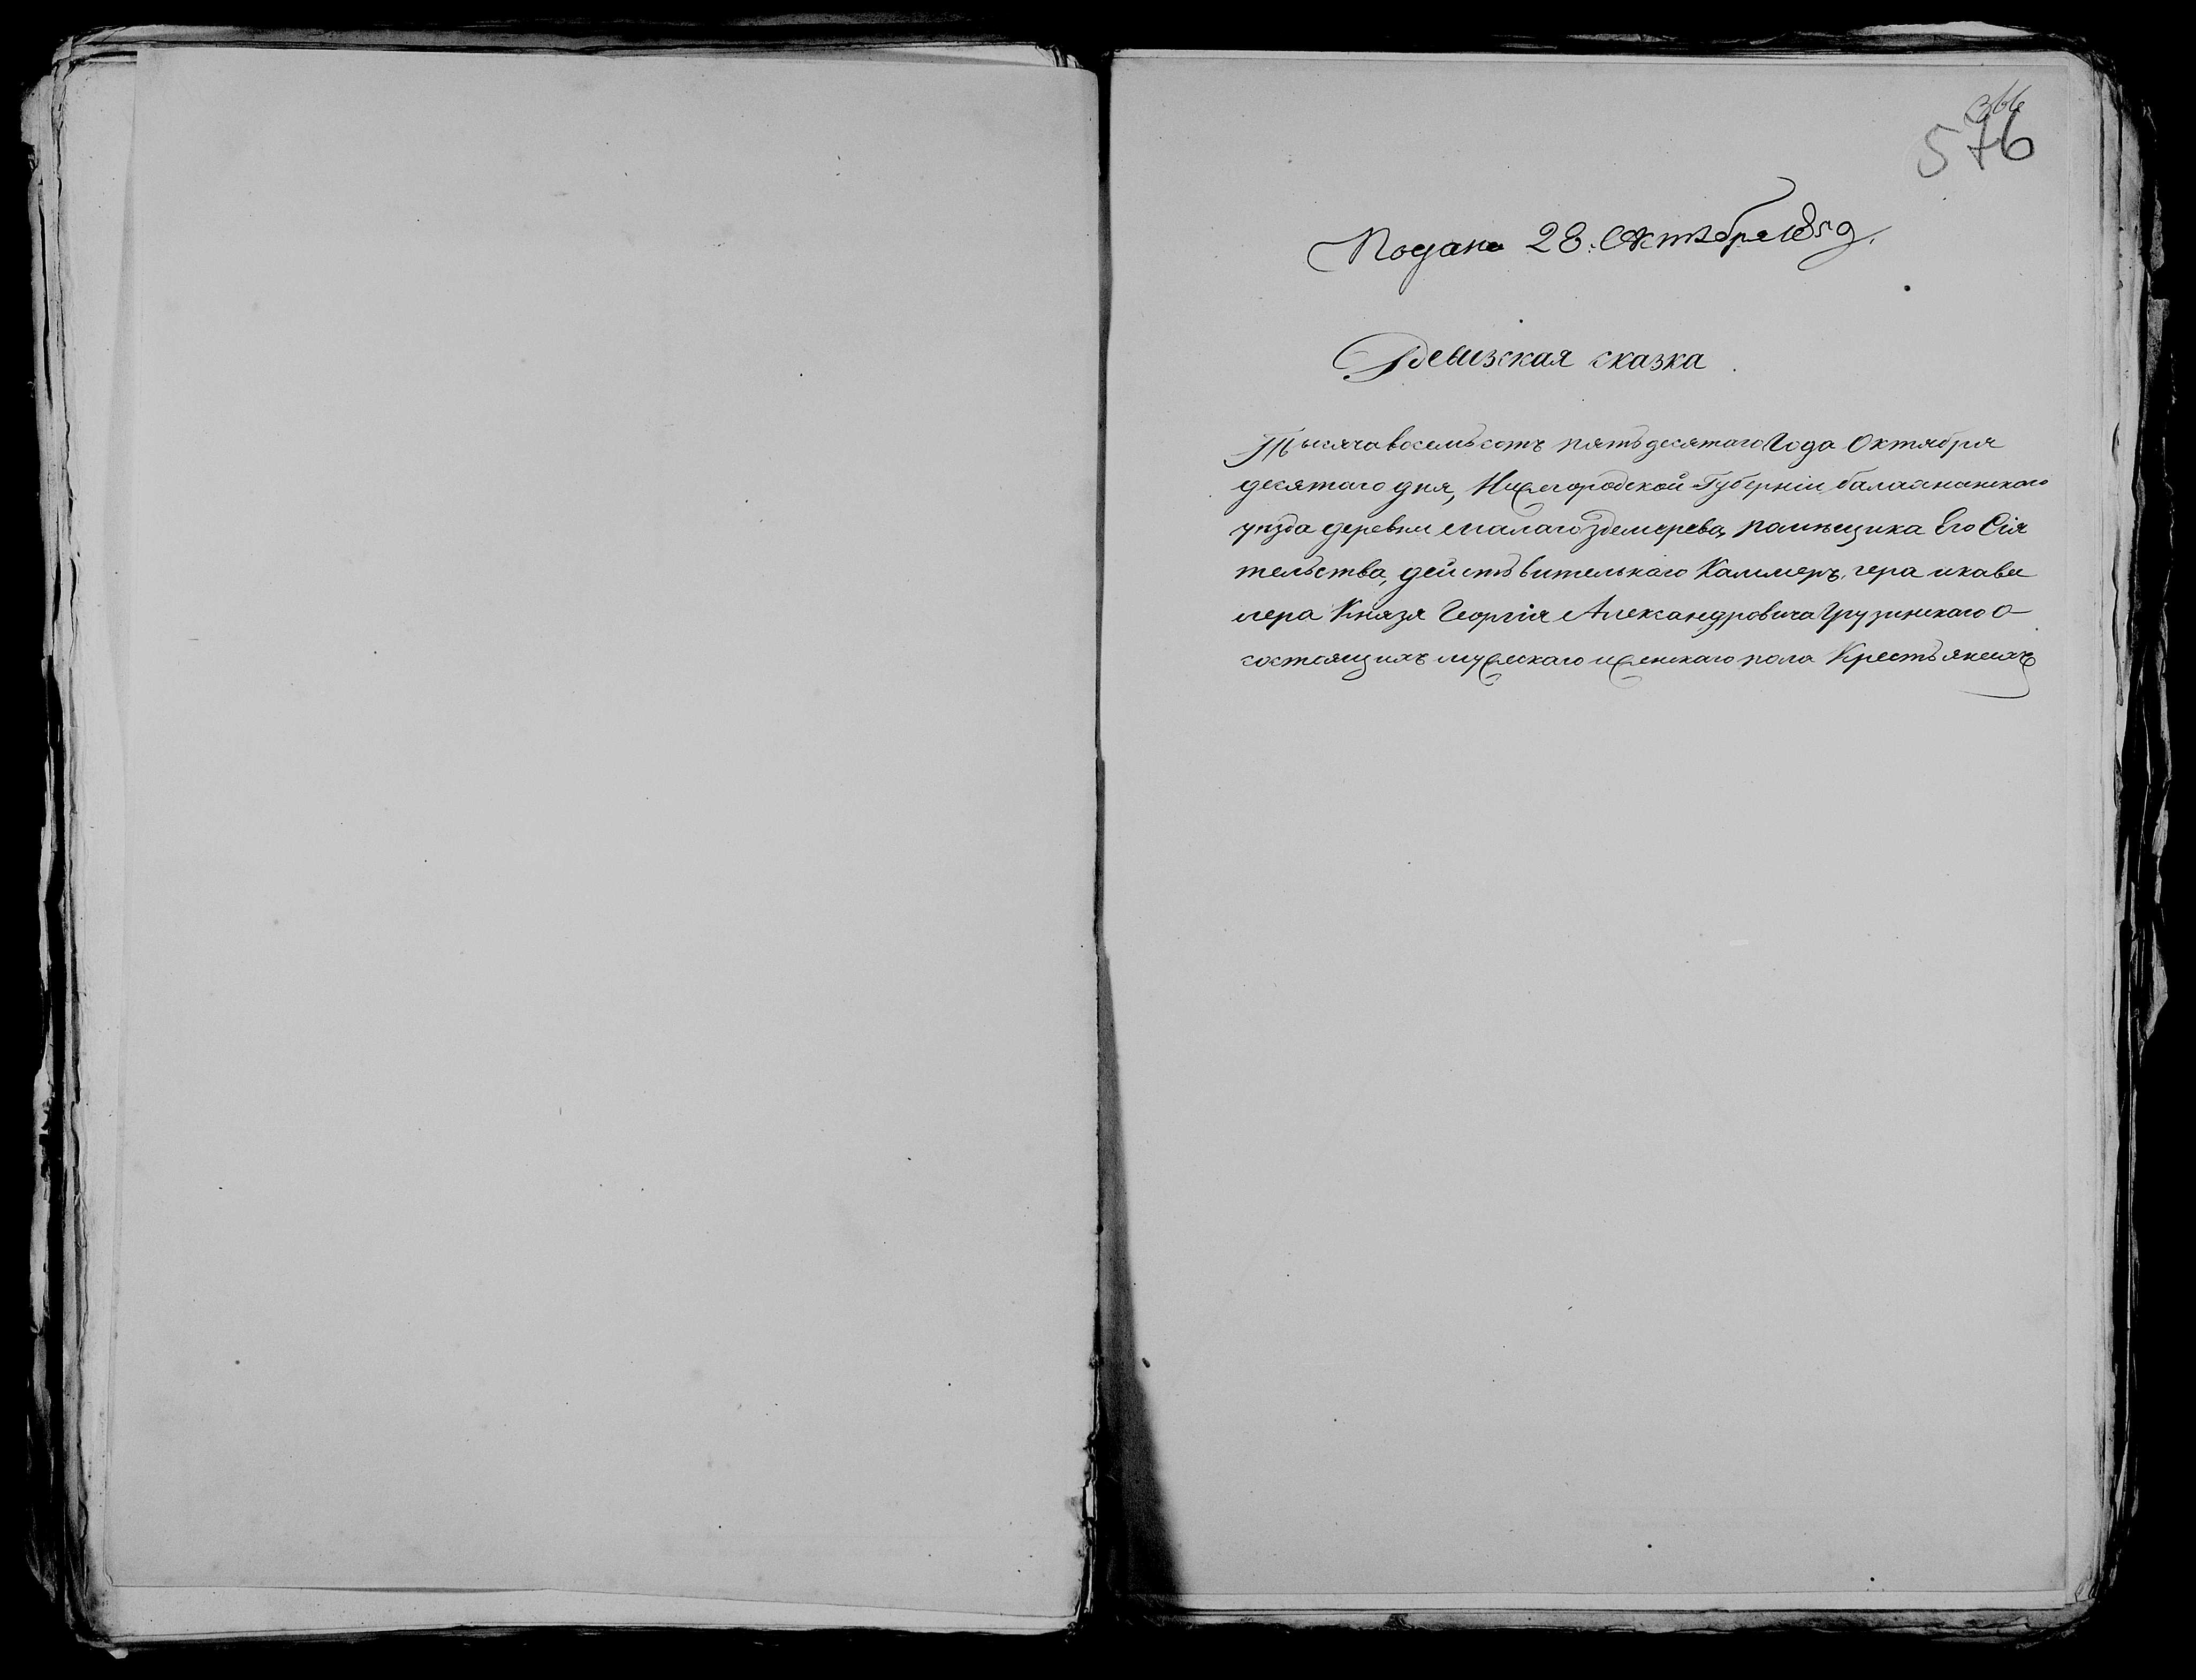 366
576
Подана 28. Октября 1850.
Ревизская сказка
Тысяча восемьсотъ пятьдесятаго Года Октября
десятаго дня, Нижегородской Губерніи балахнинского
уѣзда деревни малаго помѣщика Его Сія
тельства, действительнаго Каммеръ-гера и кава
лера Князя Георгія Александровича Грузинскаго о
состоящихъ мужескаго и женскаго пола Крестьянехъ